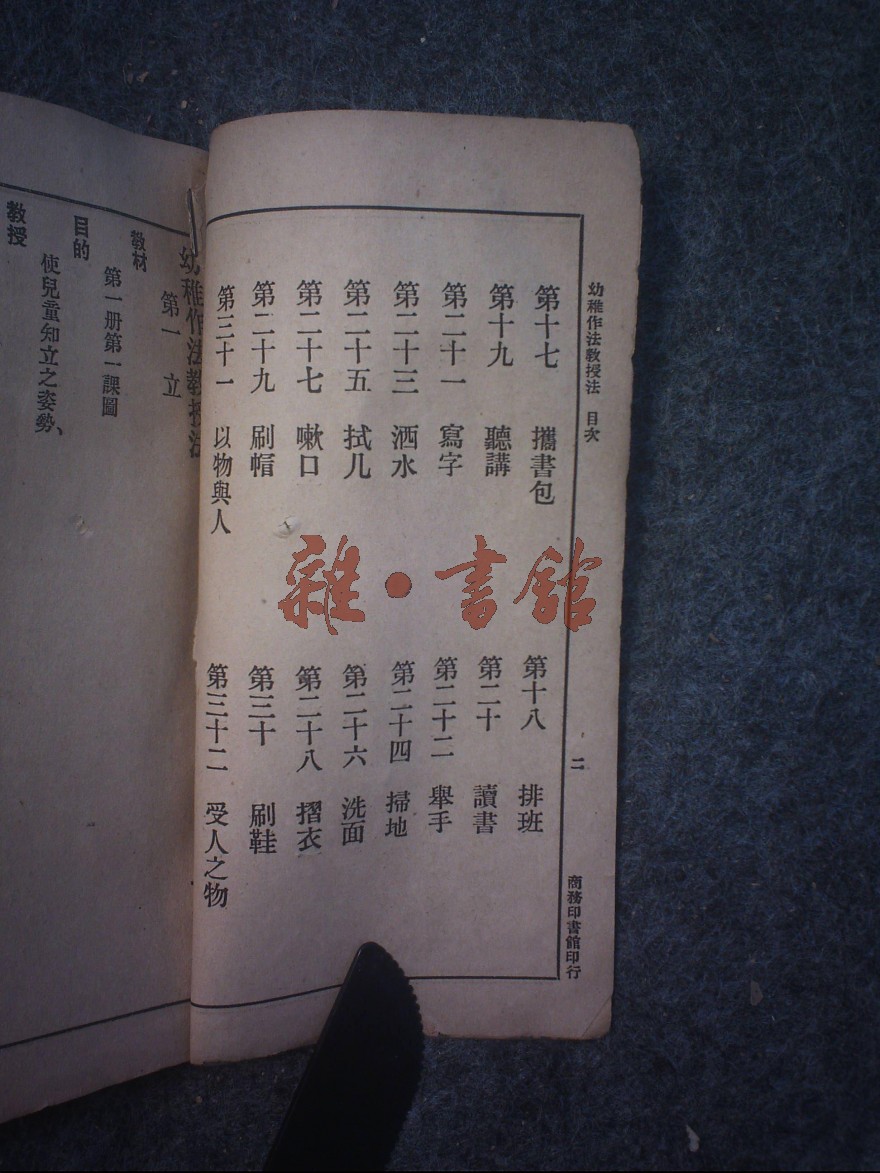 幼稚作法教授法 目次
二
商務印書館印行
第十七 攜書包
第十八 排班
第十九 聽講
第二十 讀書
第二十一 寫字
第二十二 舉手
第二十三 洒水
第二十四 掃地
第二十五 拭几
第二十六 洗面
第二十七 嗽口
第二十八 摺衣
第二十九 刷帽
第三十 刷鞋
第三十一 以物與人
第三十二 受人之物
雜·書館
幼稚作法教授法
第一 立
教材
第一册第一課圖
目的
使兒童知立之姿勢、
教授